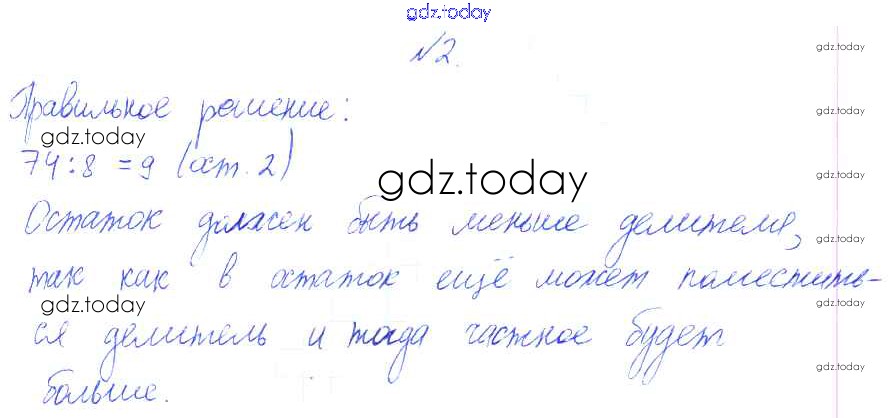 gdz.today
№2.
gdz.today
Правильное решение:
gdz.today
gdz.today
74:8 = 9 (ост. 2)
gdz.today
gdz.today
gdz.today
Остаток должен быть меньше делителя,
gdz.today
так как в остаток ещё может поместить-
gdz.today
gdz.today
ся делитель и тогда частное будет
gdz.today
больше.